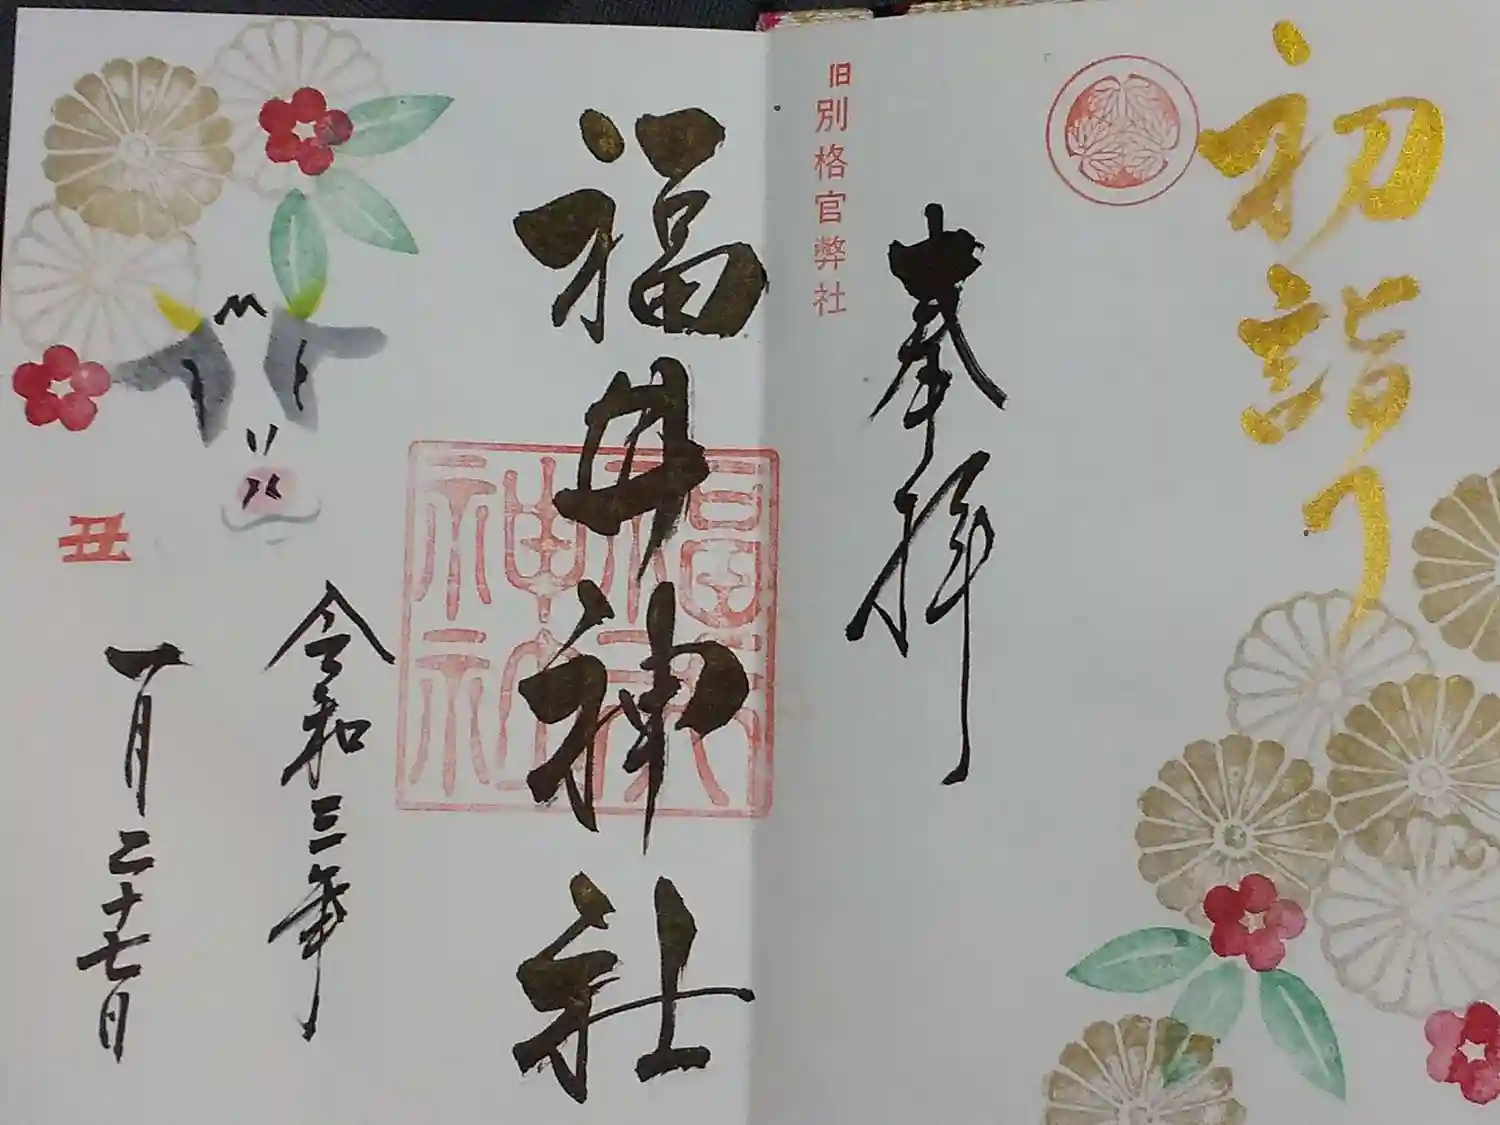 初詣り
奉拝
旧別格官弊社
福井神社
福井
神社
令和三年
一月二十七日
丑